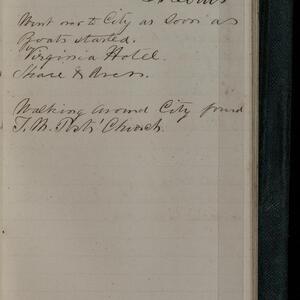 Went over to City as soon as
Boats started.
Virginia Hotel.
Walking around City found
T. M. Posts' Church.